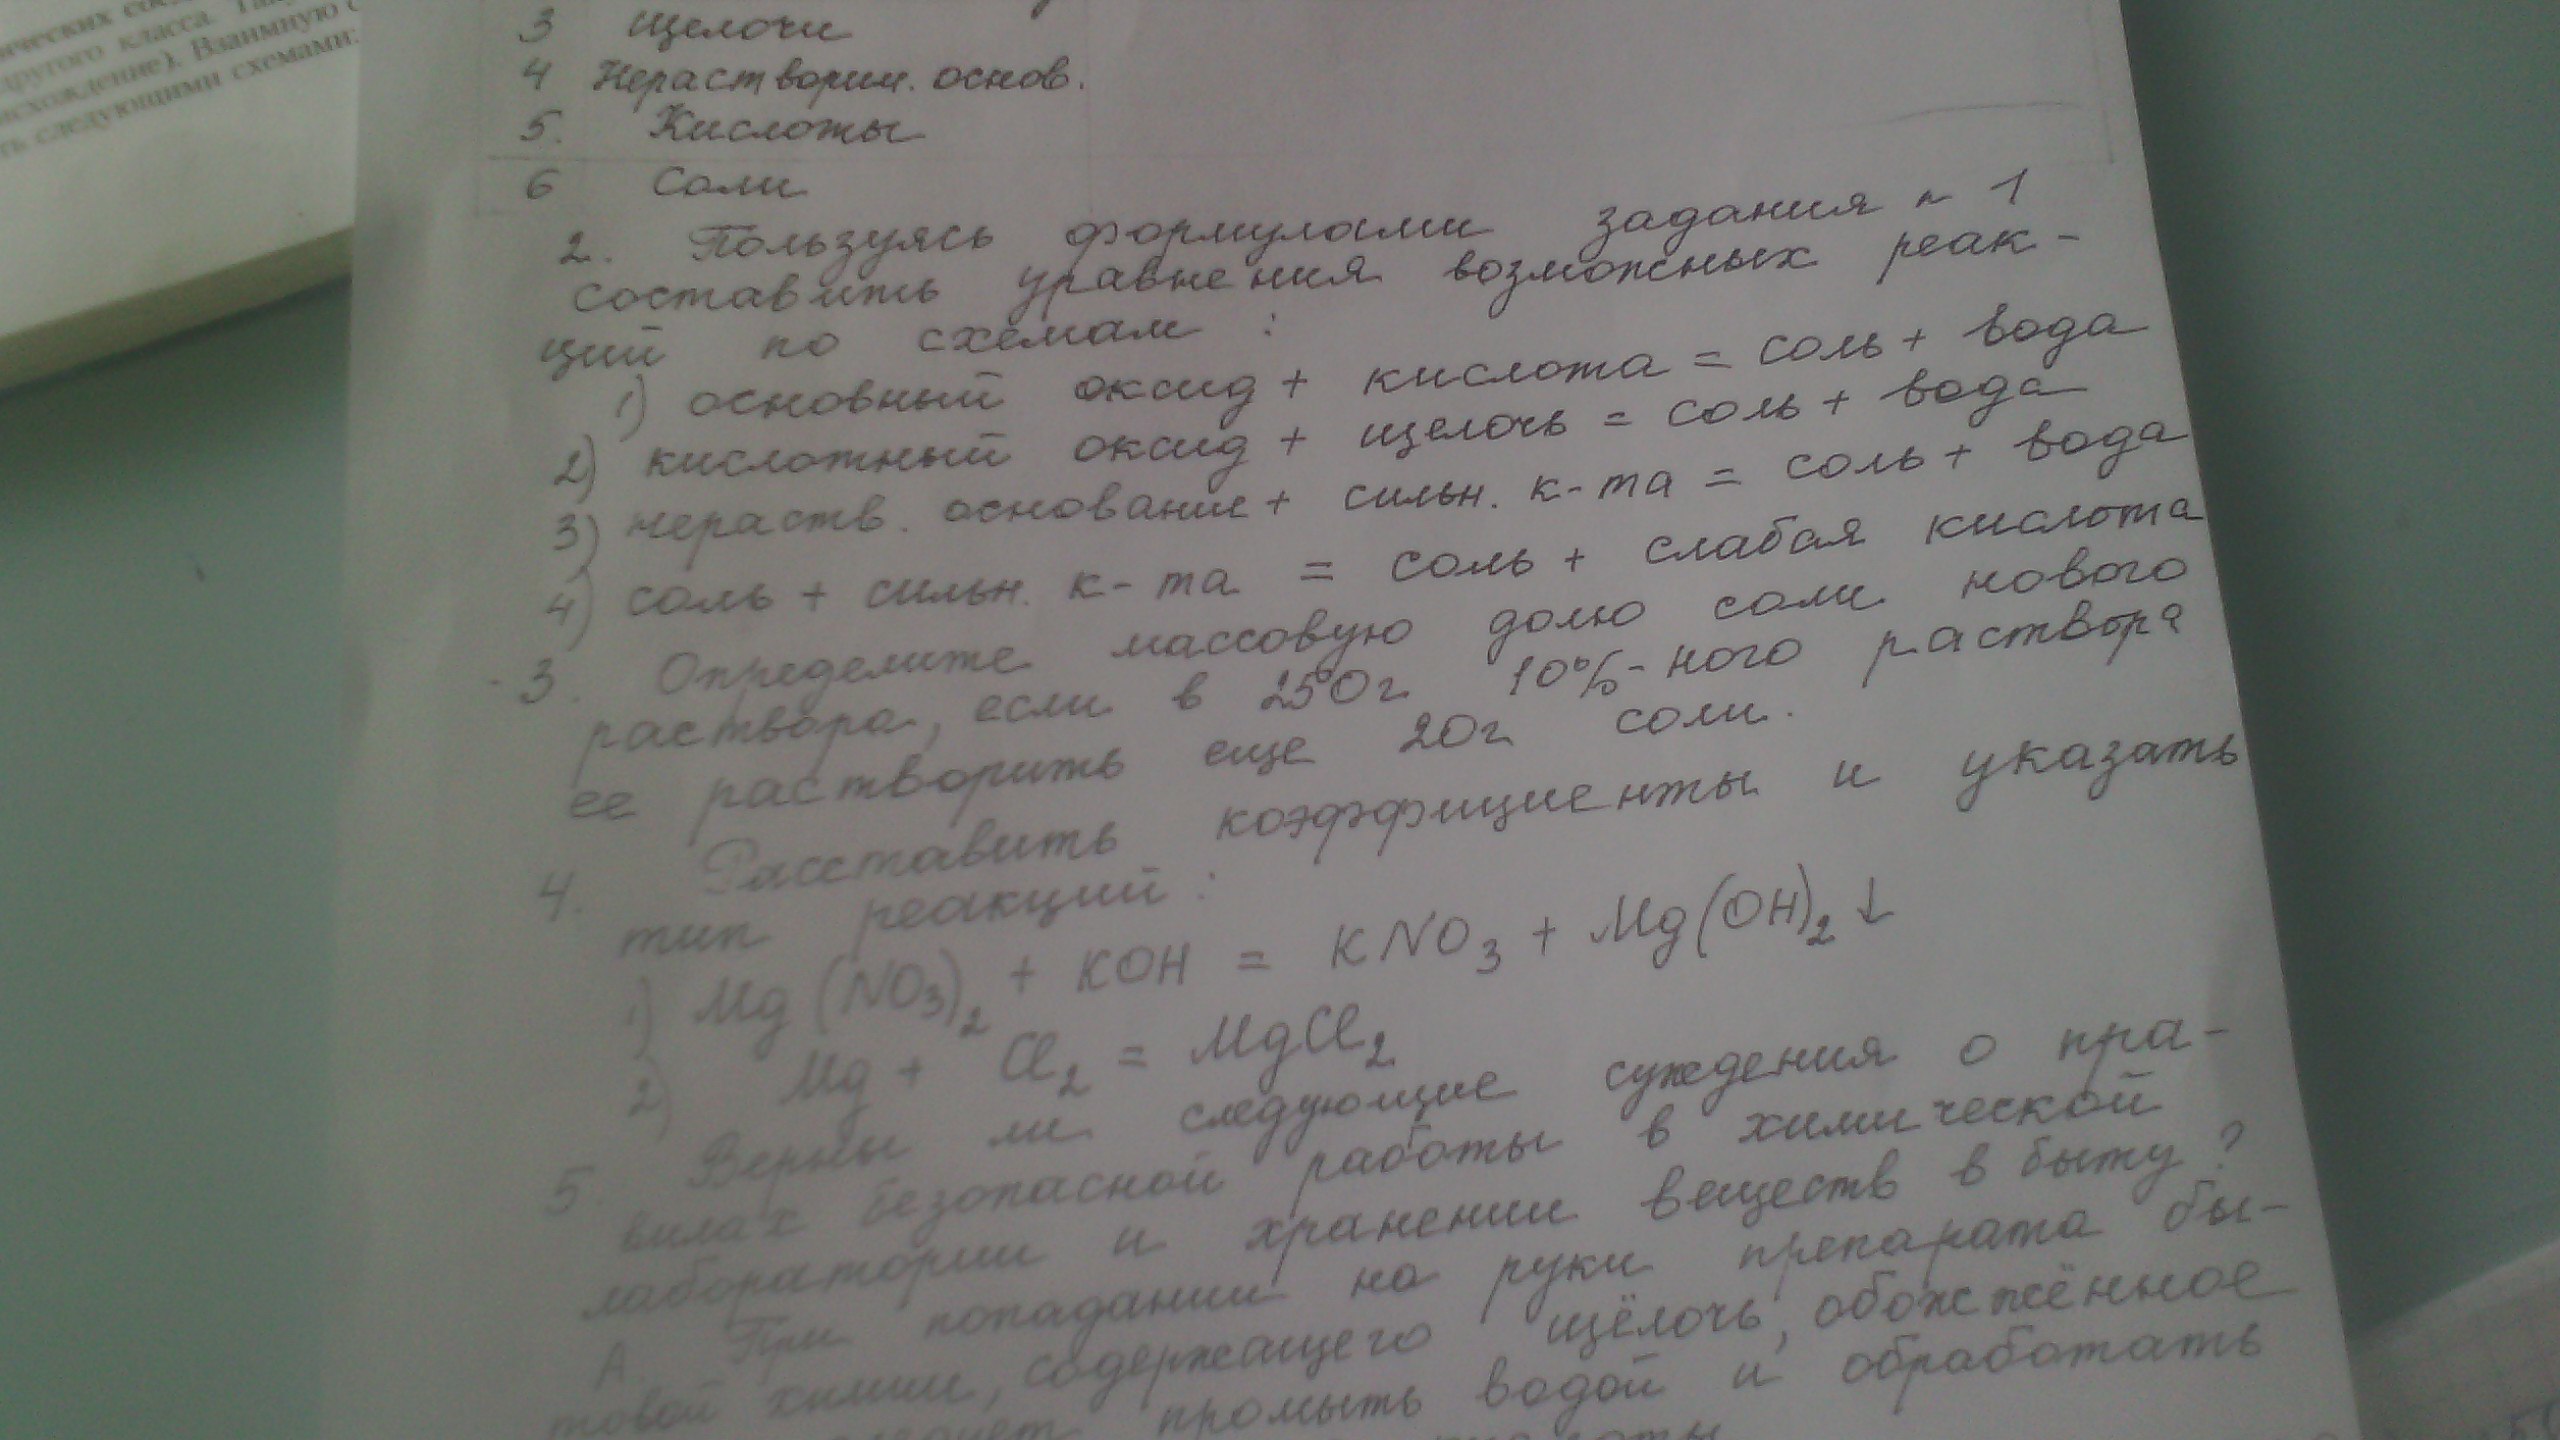 другого класса.
Взаимную
ть следующими схемами:
3 щелочи
4 Нерастворим. основ.
5. Кислоты
6 Соли
2. Пользуясь формулами задания ~ 1
составить уравнения возможных реак-
ций по схемам :
1) основный оксид + кислота = соль + вода
2) кислотный оксид + щелочь = соль + вода
3) нераств. основание + сильн. к-та = соль + вода
4) соль + сильн. к-та = соль + слабая кислота
3. Определите массовую долю соли нового
раствора, если в 250г 10%-ного раствора
ее растворить еще 20г соли.
4. Расставить коэффициенты и указать
тип реакций :
1) Mg(NO3)2 + KOH = KNO3 + Mg(OH)2↓
2) Mg + Cl2 = MgCl2
5. Верны ли следующие суждения о пра-
вилах безопасной работы в химической
лаборатории и хранении веществ в быту?
А При попадании на руки препарата бы-
товой химии, содержащего щёлочь, обожжённое
промыть водой и обработать